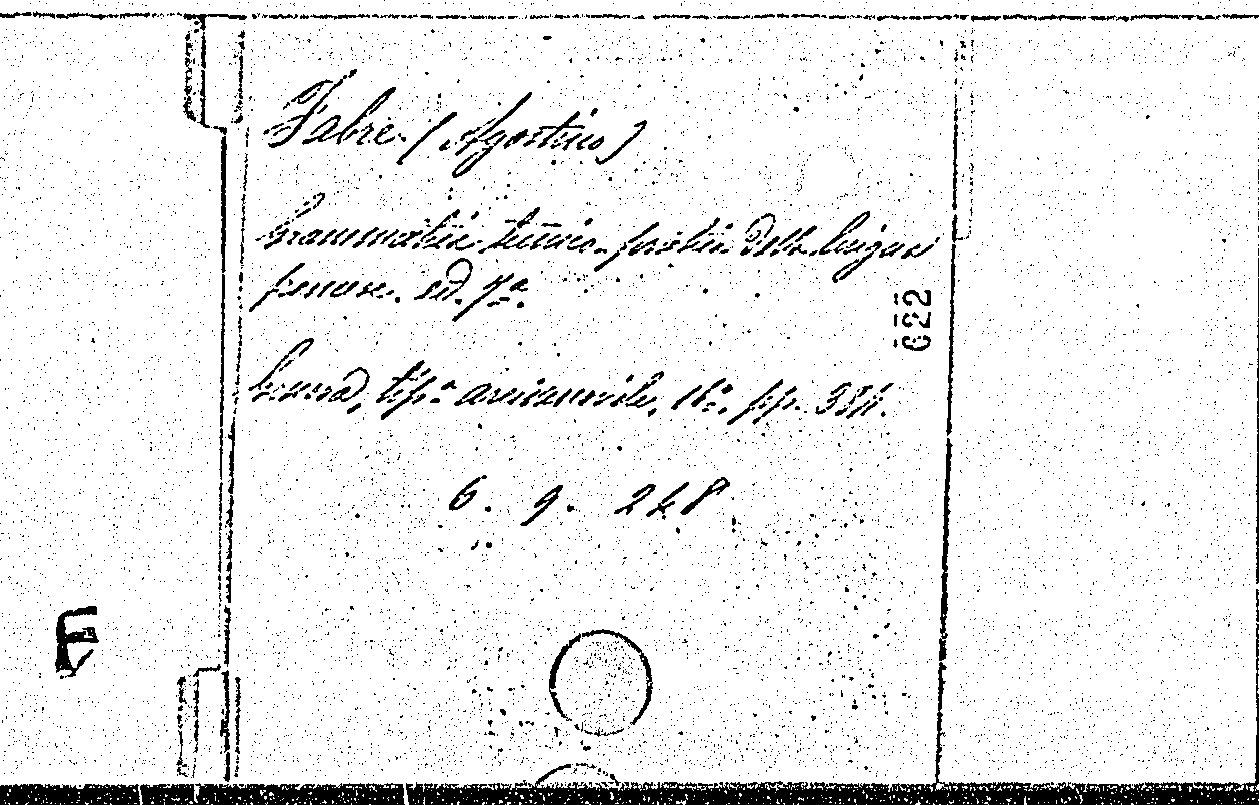 Fabre (Agostino)
Grammatica teorico-pratica della lingua
francese. ed. 7ª.
Genova, tipª arcivescovile, 16º. pp. 384.
6. 9. 248
622
F